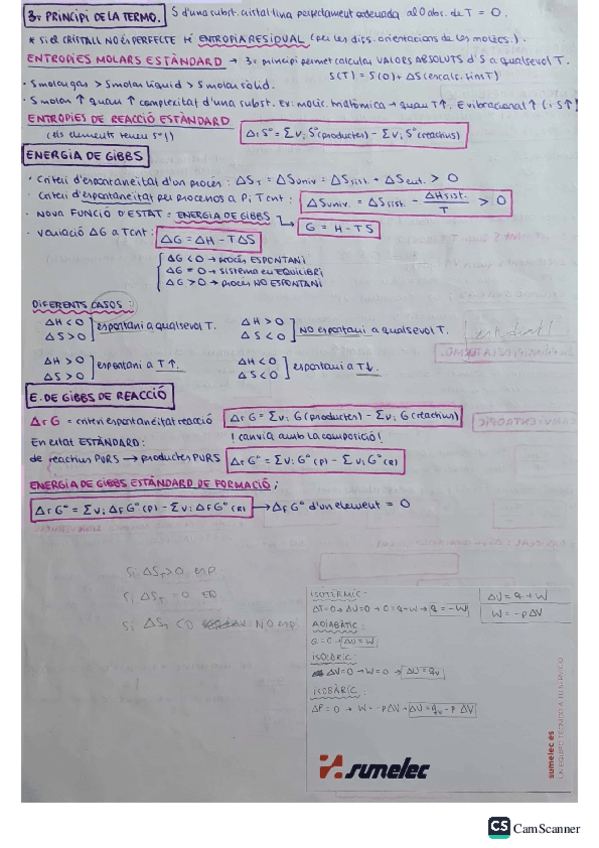 3r PRINCIPI DE LA TERMO. S d'una subst. cristal·lina perfectament ordenada al 0 abs. de T = 0.
* Si el CRISTALL NO ÉS PERFECTE té ENTROPIA RESIDUAL (per les dif. orientacions de les molèc.).
ENTROPIES MOLARS ESTÀNDARD → 3r principi permet calcular VALORS ABSOLUTS d'S a qualsevol T.
S(T) = S(0) + ΔS (encalc. fins T)
· S molar gas > S molar líquid > S molar sòlid.
· S molar ↑ quan ↑ complexitat d'una subst. Ex: molèc. → quan T↑. E vibracional ↑ (i S↑)
ENTROPIES DE REACCIÓ ESTÀNDARD
(els elements tenen S°!) ΔrS° = Σνi S°(productes) − Σνi S°(reactius)
ENERGIA DE GIBBS
· Criteri d'espontaneïtat d'un procés: ΔST = ΔSuniv = ΔSsist + ΔSent. > 0
· Criteri d'espontaneïtat per processos a P i T cnt: ΔSuniv. = ΔSsist − ΔHsist. / T > 0
· NOVA FUNCIÓ D'ESTAT: ENERGIA DE GIBBS → G = H − TS
· Variació ΔG a T cnt: ΔG = ΔH − TΔS
ΔG < 0 → procés ESPONTANI
ΔG = 0 → sistema en EQUILIBRI
ΔG > 0 → procés NO ESPONTANI
DIFERENTS CASOS:
ΔH < 0 ΔS > 0 ] espontani a qualsevol T. ΔH > 0 ΔS < 0 ] NO espontani a qualsevol T.
ΔH > 0 ΔS > 0 ] espontani a T↑. ΔH < 0 ΔS < 0 ] espontani a T↓.
E. DE GIBBS DE REACCIÓ
ΔrG = criteri espontaneïtat reacció ΔrG = Σνi G(productes) − Σνi G(reactius)
En estat ESTÀNDARD: ! canvia amb la composició!
de reactius PURS → productes PURS ΔrG° = Σνi G°(P) − Σνi G°(R)
ENERGIA DE GIBBS ESTÀNDARD DE FORMACIÓ;
ΔrG° = Σνi ΔfG°(P) − Σνi ΔfG°(R) → ΔfG° d'un element = 0
Si ΔST > 0 esp
Si ΔST = 0 EQ
Si ΔST < 0 NO esp.
ISOTÈRMIC: ΔU = q + W
ΔT = 0 → ΔU = 0 → 0 = q + W → q = −W W = −pΔV
ADIABÀTIC:
q = 0 → ΔU = W
ISOCÒRIC:
ΔV = 0 → W = 0 → ΔU = qv
ISOBÀRIC:
ΔP = 0 → W = −PΔV → ΔU = qv − PΔV
sumelec
sumelec.es
UN EQUIPO TÉCNICO A TU SERVICIO
CS CamScanner